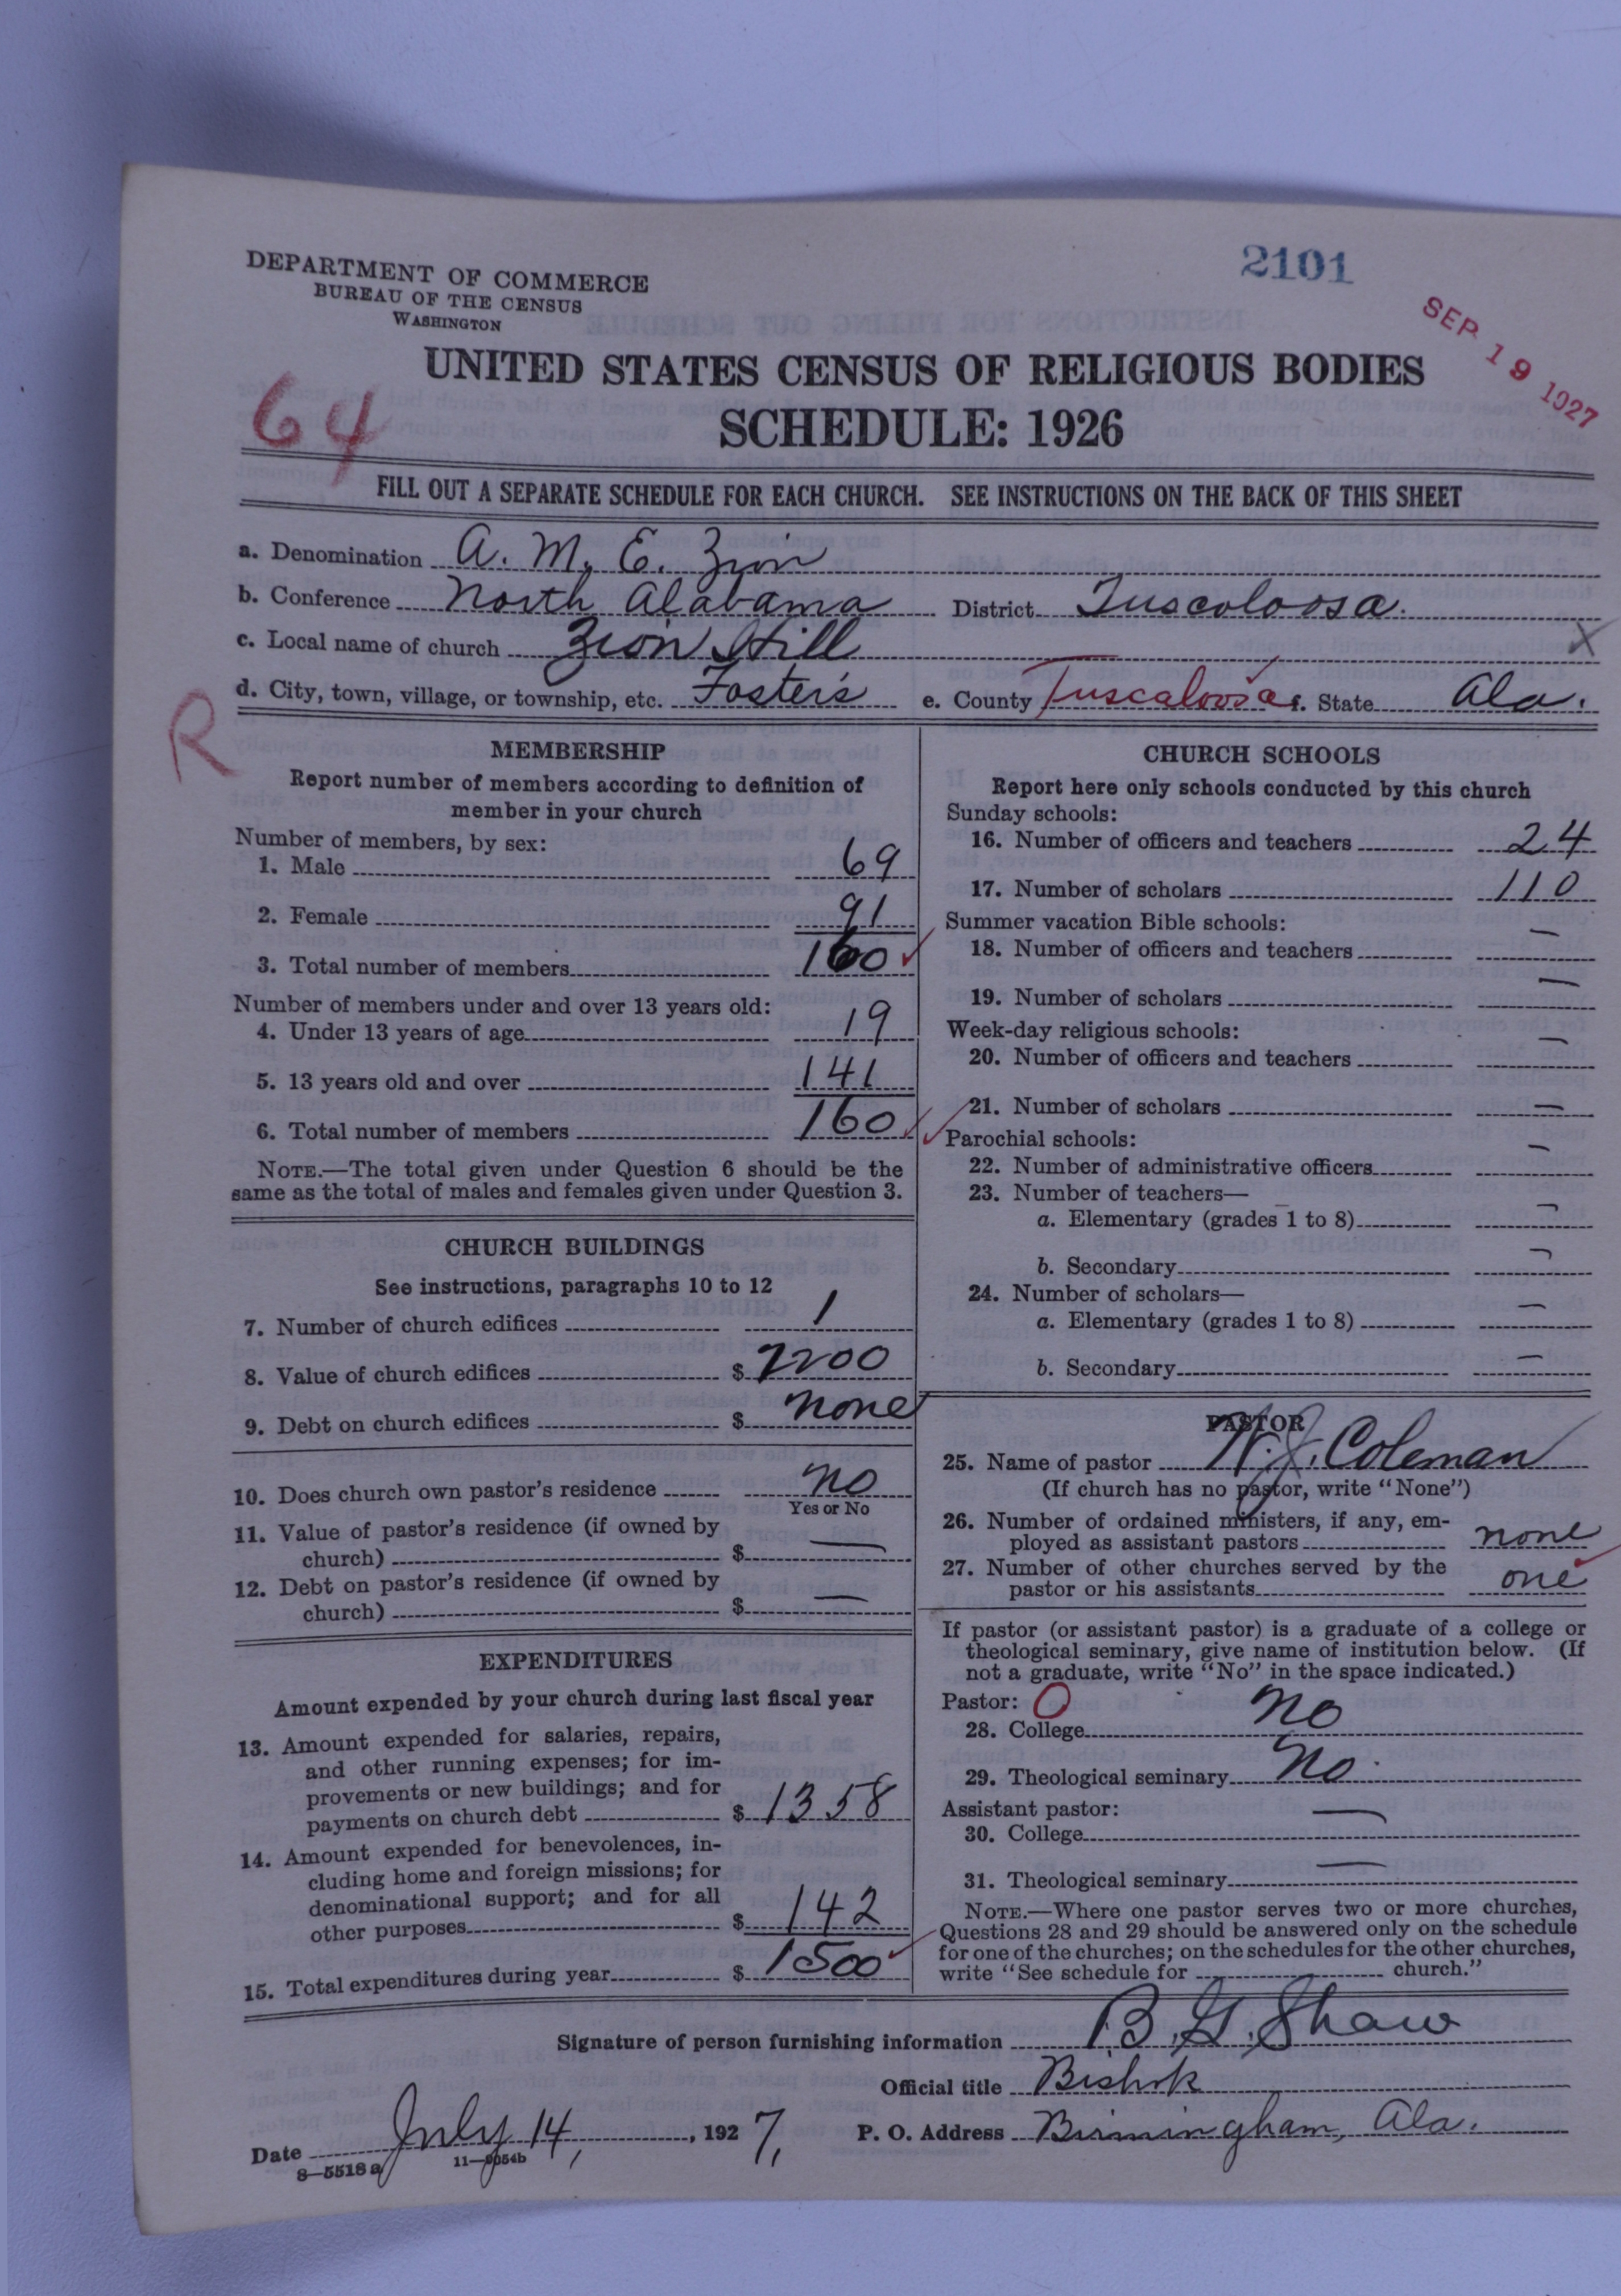 DEPARTMENT OF COMMERCE
BUREAU OF THE CENSUS
WASHINGTON
2101
SEP 19 1927
UNITED STATES CENSUS OF RELIGIOUS BODIES
64
SCHEDULE: 1926
FILL OUT A SEPARATE SCHEDULE FOR EACH CHURCH. SEE INSTRUCTIONS ON THE BACK OF THIS SHEET
a. Denomination A. M. E. Zion
b. Conference North Alabama District Tuscoloosa.
c. Local name of church Zion Hill X
d. City, town, village, or township, etc. Foster's e. County Tuscaloosa f. State Ala.
R
MEMBERSHIP
Report number of members according to definition of
member in your church
Number of members, by sex:
1. Male 69
2. Female 91
3. Total number of members 160 ✓
Number of members under and over 13 years old:
4. Under 13 years of age 19
5. 13 years old and over 141
6. Total number of members 160 ✓
NOTE.—The total given under Question 6 should be the
same as the total of males and females given under Question 3.
CHURCH BUILDINGS
See instructions, paragraphs 10 to 12
7. Number of church edifices 1
8. Value of church edifices $ 2200
9. Debt on church edifices $ none
10. Does church own pastor's residence no
Yes or No
11. Value of pastor's residence (if owned by
church) $ —
12. Debt on pastor's residence (if owned by
church) $ —
EXPENDITURES
Amount expended by your church during last fiscal year
13. Amount expended for salaries, repairs,
and other running expenses; for im-
provements or new buildings; and for
payments on church debt $ 1358
14. Amount expended for benevolences, in-
cluding home and foreign missions; for
denominational support; and for all
other purposes $ 142
15. Total expenditures during year $ 1500 ✓
CHURCH SCHOOLS
Report here only schools conducted by this church
Sunday schools:
16. Number of officers and teachers 24
17. Number of scholars 110
Summer vacation Bible schools:
18. Number of officers and teachers —
19. Number of scholars —
Week-day religious schools:
20. Number of officers and teachers —
21. Number of scholars —
✓ Parochial schools:
22. Number of administrative officers —
23. Number of teachers—
a. Elementary (grades 1 to 8) —
b. Secondary —
24. Number of scholars—
a. Elementary (grades 1 to 8) —
b. Secondary —
PASTOR
25. Name of pastor W. J. Coleman
(If church has no pastor, write "None")
26. Number of ordained ministers, if any, em-
ployed as assistant pastors none
27. Number of other churches served by the
pastor or his assistants one ✓
If pastor (or assistant pastor) is a graduate of a college or
theological seminary, give name of institution below. (If
not a graduate, write "No" in the space indicated.)
Pastor: O
28. College No
29. Theological seminary No.
Assistant pastor:
30. College —
31. Theological seminary —
NOTE.—Where one pastor serves two or more churches,
Questions 28 and 29 should be answered only on the schedule
for one of the churches; on the schedules for the other churches,
write "See schedule for church."
Signature of person furnishing information B. G. Shaw
Official title Bishop
Date July 14, 1927, P. O. Address Birmingham, Ala.
8—5518 a 11—9054b